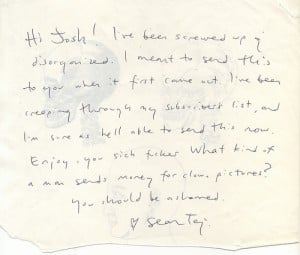 Hi Josh! I've been screwed up &
disorganised. I meant to send this
to you when it first came out. I've been
creeping through my subscribers list, and
I'm sure as hell able to send this now.
Enjoy, you sick fucker. What kind of
a man sends money for clown pictures?
You should be ashamed.
♡ Sean T